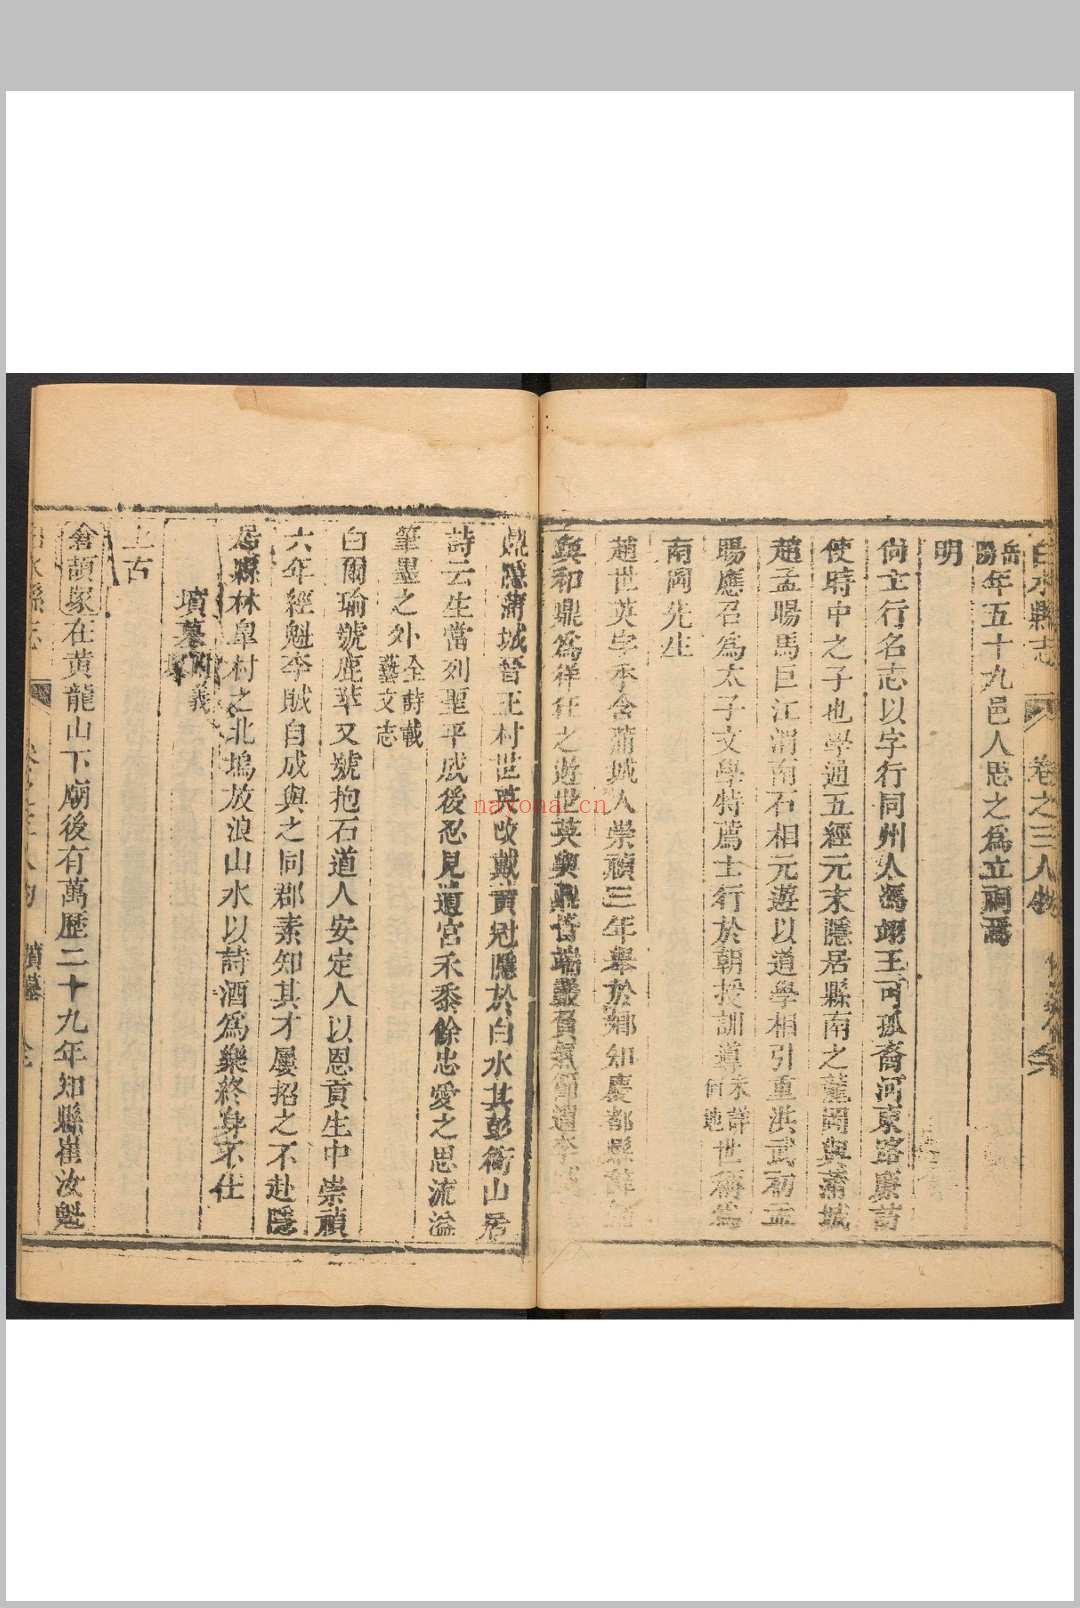 白水縣志 卷之三人物
岳陽年五十九邑人思之為立祠焉
明
尚士行名志以字行同州人馮翊王可孤裔河東路廉訪
使時中之子也學通五經元末隱居縣南之龍岡與蒲城
趙孟暘馬巨江渭南石相元遊以道學相引重洪武初孟
暘應召為太子文學特薦士行於朝授訓導未詳何地世稱為
南岡先生
趙世英字季含蒲城人崇禎三年舉於鄉知慶都縣
與和鼎為祥狂之遊世英與鼎皆端嚴負氣節遭李
鼎隱蒲城晉王村世英改戴黃冠隱於白水其彭衙山居
詩云生當列聖平成後忍見遺宮禾黍餘忠愛之思流溢
筆墨之外全詩載藝文志
白爾瑜號鹿苹又號抱石道人安定人以恩貢生中崇禎
六年經魁李賊自成與之同郡素知其才屢招之不赴隱
居縣林皐村之北塢放浪山水以詩酒為樂終身不仕
墳墓附義塚
上古
倉頡冢在黃龍山下廟後有萬歷二十九年知縣崔汝魁
白水縣志 人物 墳墓
navona.cn